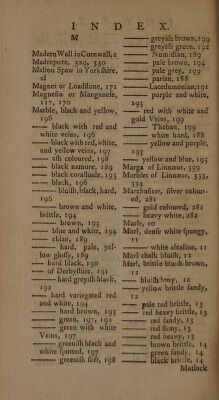 INDEX.
M
Madern Well in Cornwall, 2
Madrepore, 329, 330
Malton Spaw in Yorkshire,
Magnet or Loadstone, 171
Magnesia or Manganese,
117, 170
Marble, black and yellow,
196
—— black with red and
white veins, 196
—— black with red, white,
and yellow veins, 197
—— ash coloured, 198
—— black namure, 189
—— black coralloide, 193
—— black, 196
—— bluish, black, hard,
196
—— brown and white,
brittle, 194
—— brown, 195
—— blue and white, 194
—— chian, 189
—— hard, pale, yel-
low glossy, 189
—— hard black, 190
—— of Derbyshire, 191
—— hard greyish black,
192
—— hard variegated red
and white, 194
—— hard brown, 195
—— green, 197, 192
—— green with white
Veins, 197
—— greenish black and
white spotted, 197
—— greenish soft, 198
—— greyish brown, 199
—— greyish green, 192
—— Numidian, 189
—— pale brown, 194
—— pale grey, 199
—— parian, 188
—— Lacedemonian, 191
—— purple and white,
193
—— red with white and
gold Veins, 199
—— Theban, 199
—— white hard, 188
—— yellow and purple,
195
—— yellow and blue, 195
Marga of Linnæus, 359
Marmores of Linnæus, 355,
334
Marchasites, silver colour-
ed, 281
—— gold coloured, 281
—— heavy white, 282
Marls, 10
Marl, dense white spongy,
11
—— white alcaline, 11
Marl chalk bluish, 12
Marl, brittle bluish brown,
12
—— bluish stony, 12
—— yellow brittle sandy,
12
—— pale red brittle, 13
—— red heavy brittle, 13
—— red sandy, 13
—— red stony, 13
—— red heavy, 13
—— brown brittle, 14
—— green sandy, 14
—— black brittle, 14
Matlock